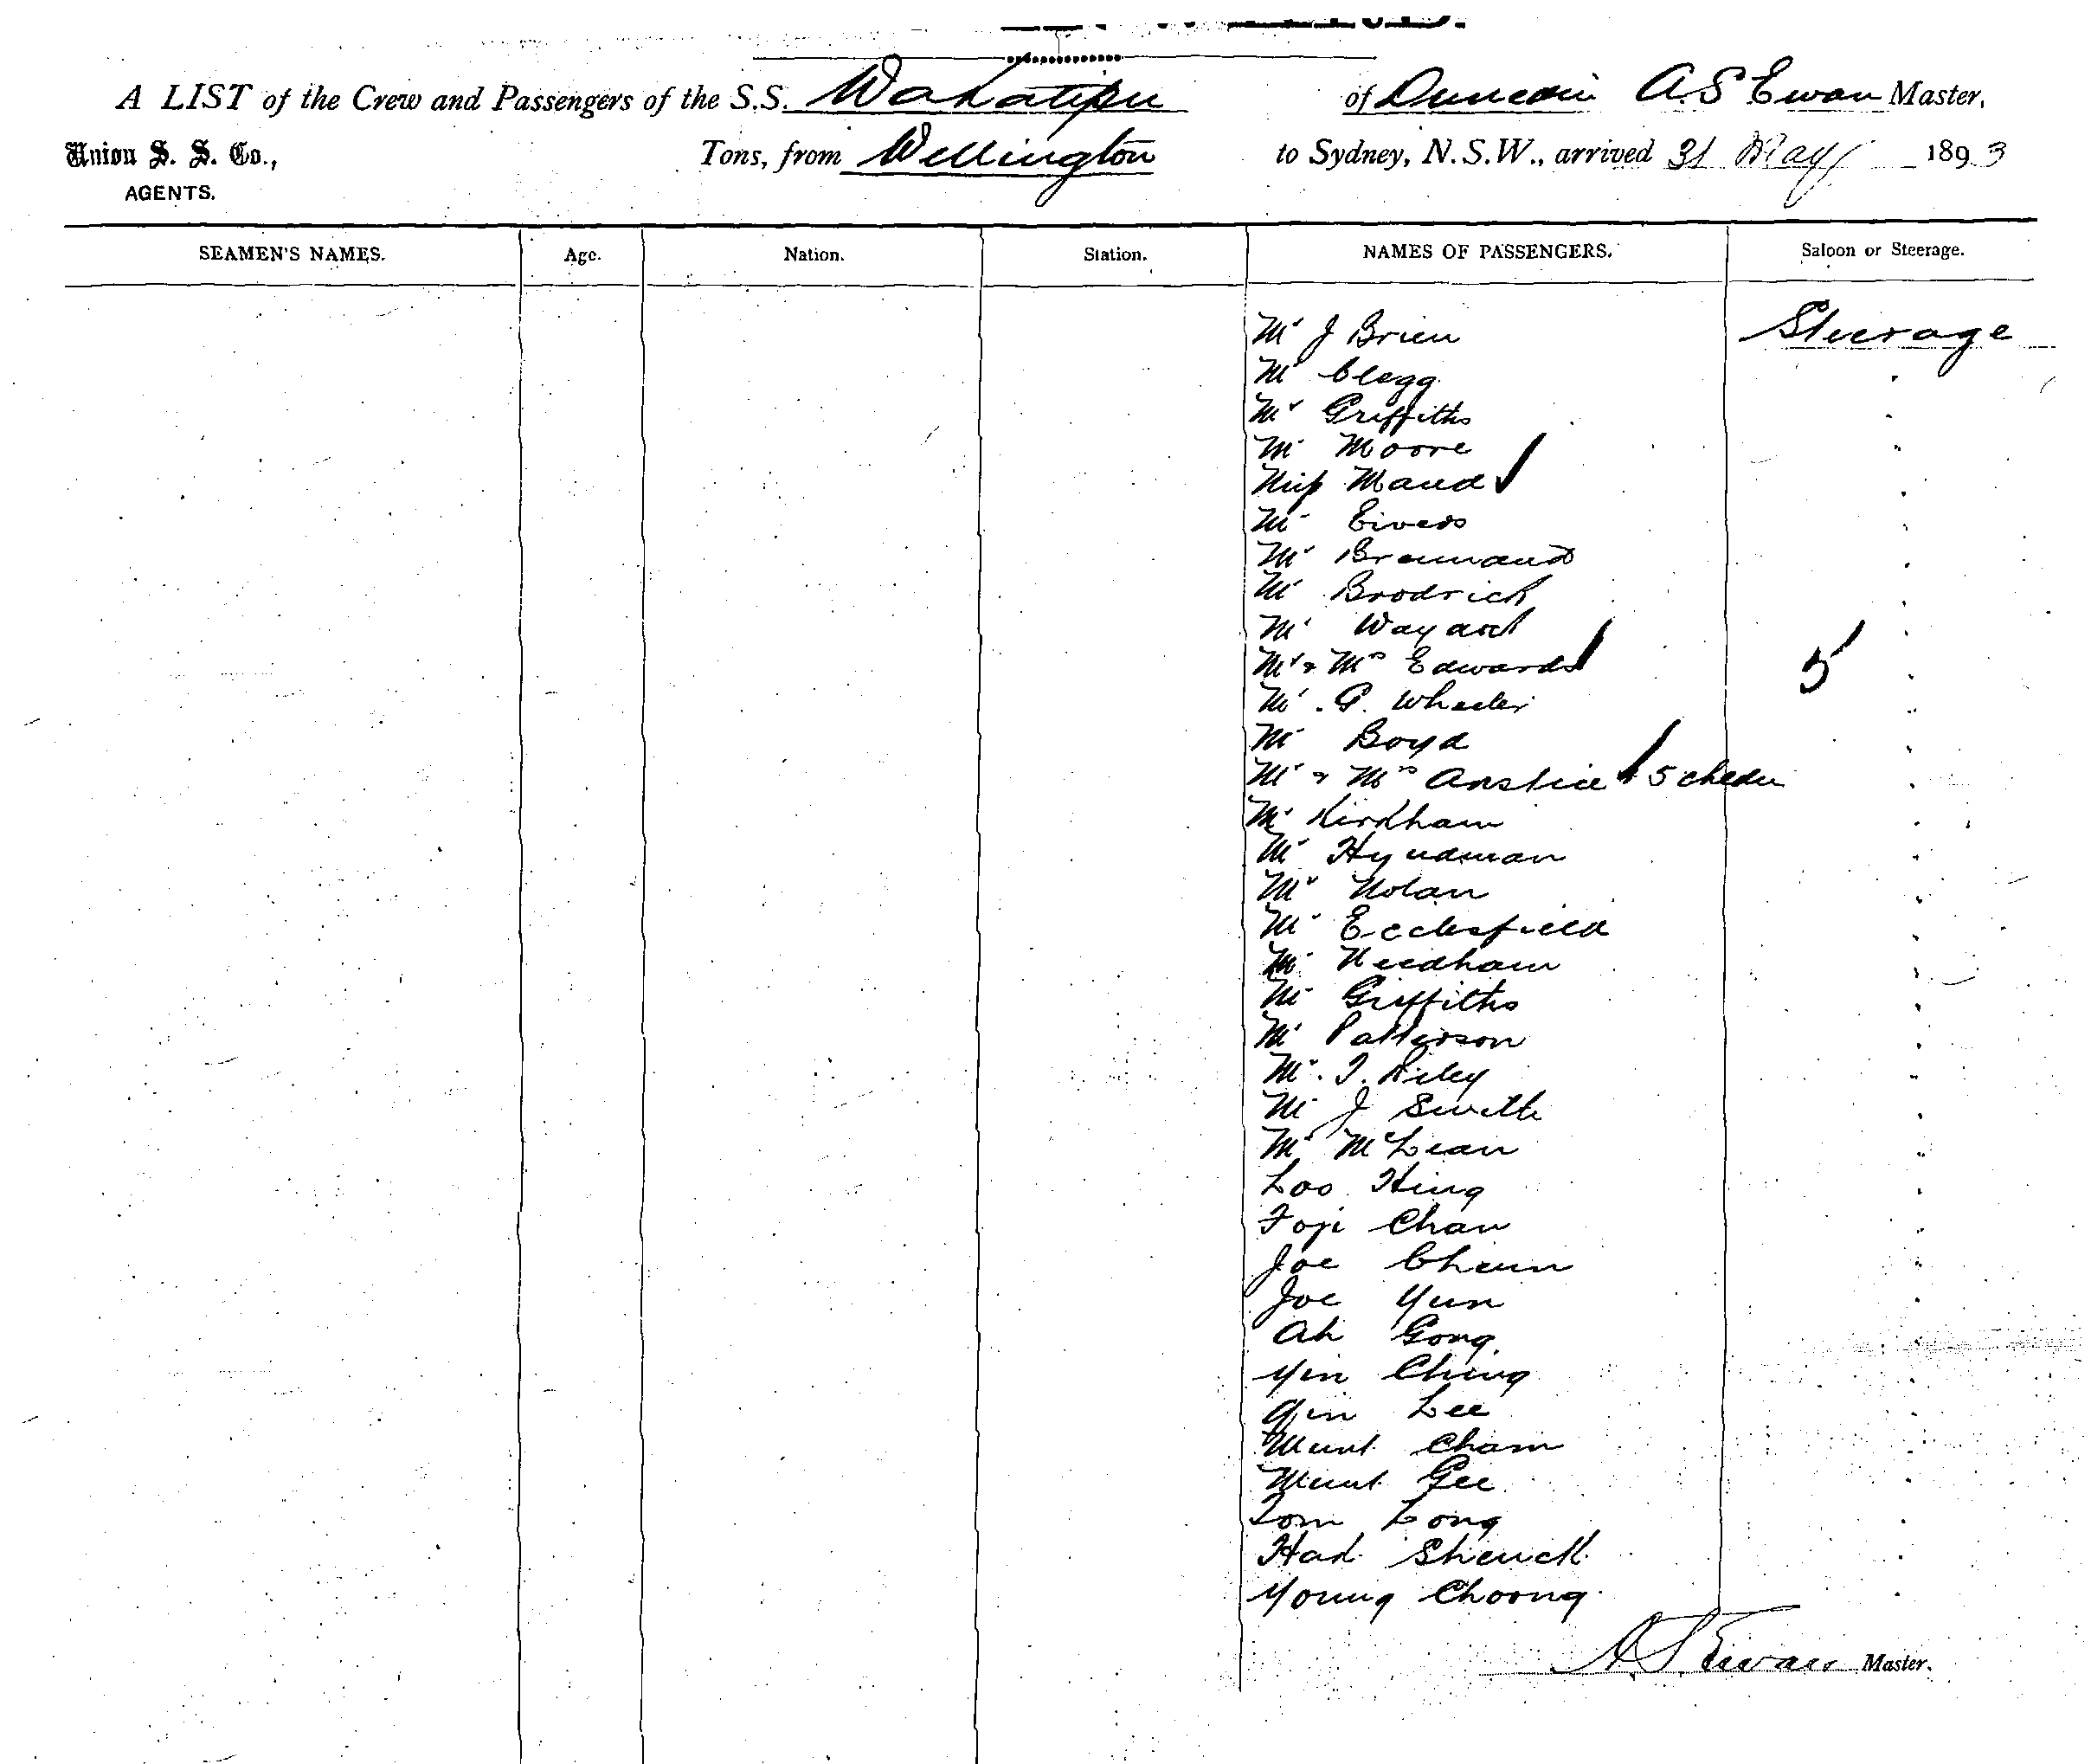 A LIST of the Crew and Passengers of the S.S. Wakatipu of Dunedin A. S Ewan Master,
Union S. S. Co., Tons, from Wellington to Sydney, N.S.W., arrived 31 May 1893
AGENTS.
SEAMEN'S NAMES. Age. Nation. Station. NAMES OF PASSENGERS. Saloon or Steerage.
Mr J Brien Steerage
Mr Clegg
Mr Griffiths
Mr Moore
Miss Maud
Mr Eivers
Mr Brennand
Mr Brodrick
Mr
Mr & Mrs Edwards 5
Mr. G. Wheeler
Mr Boyd
Mr & Mrs Anstice & 5 
Mr Kirkham
Mr Hyndman
Mr Nolan
Mr Ecclesfield
Mr Needham
Mr Griffiths
Mr Patterson
Mr. T. Riley
Mr J Smith
Mr McLean
Loo Hing
Chan
Joe Cheun
Joe Yun
Ah Gong
Yin Ching
Gin Lee
Cham
Gee
Tom Long
Young Choong
A. S. Ewan Master.